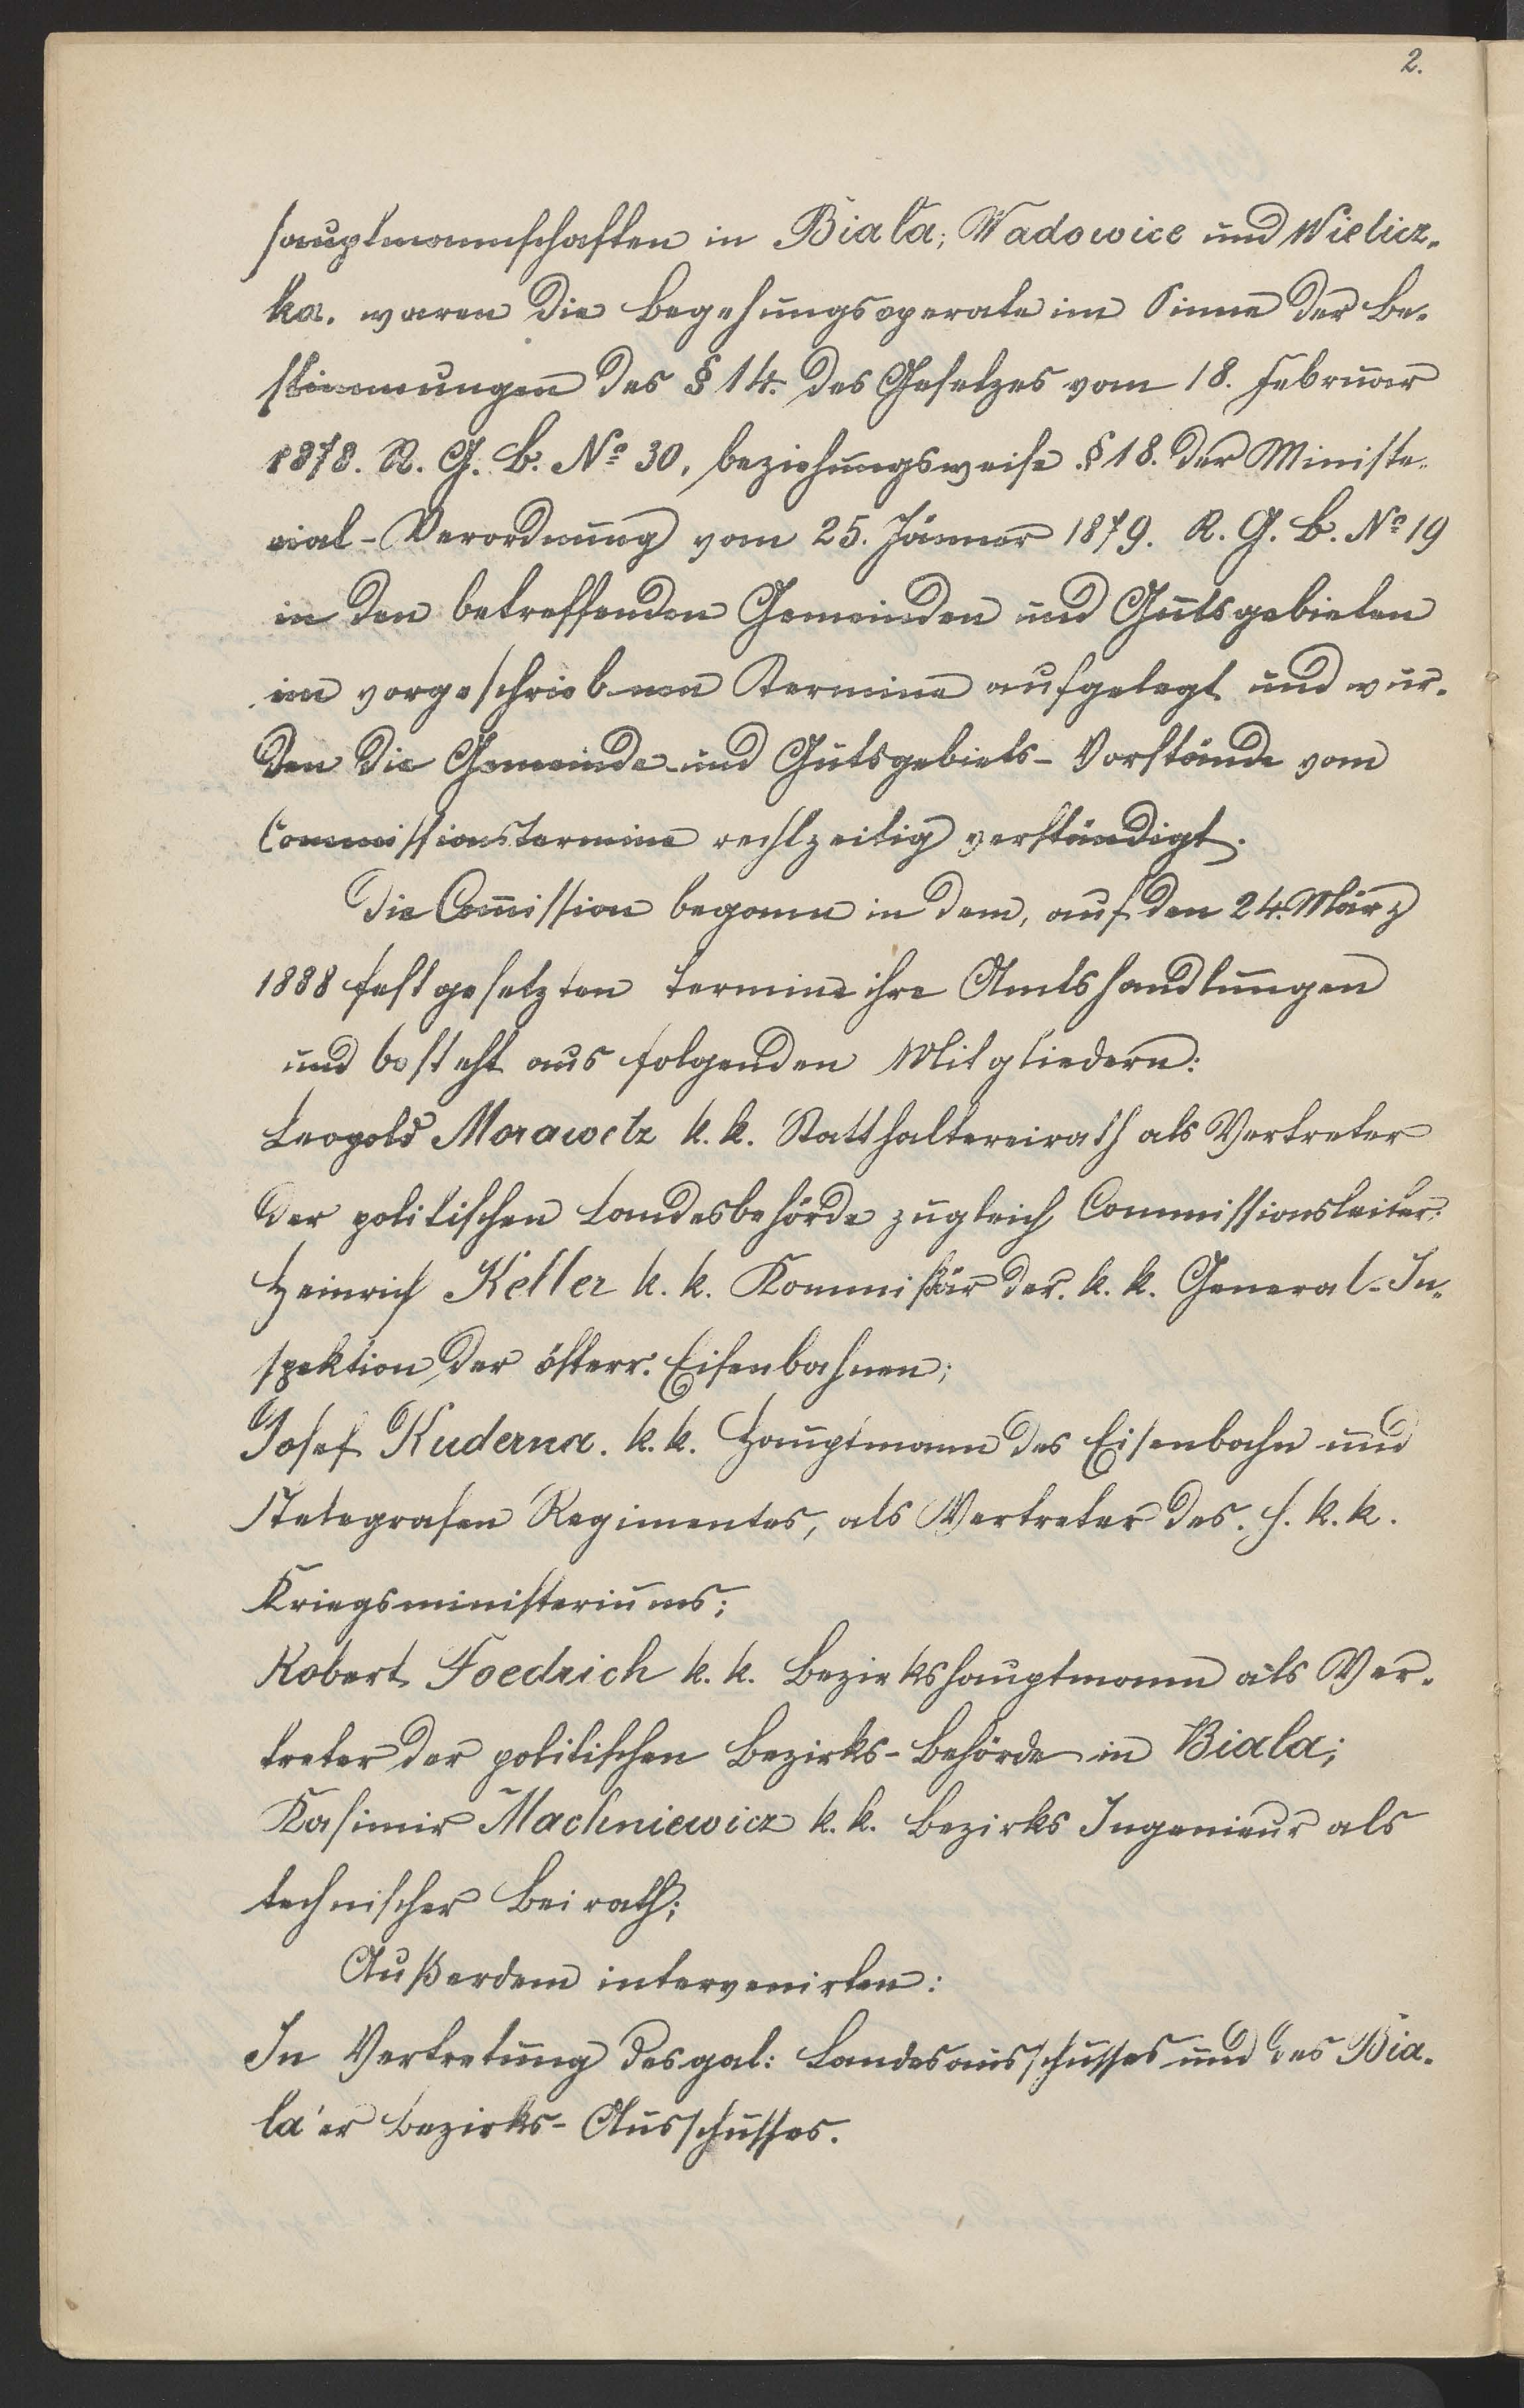 2.
hauptmannschaften in Biała, Wadowice und Wielicz-
ka. waren die Begehungsoperate im Sinne der Be-
stimmungen des § 14. des Gesetzes vom 18. Februar
1878. R. G. B. No 30, beziehungsweise § 18. der Ministe-
rial-Verordnung vom 25. Jänner 1879. R. G. B. No 19
in den betreffenden Gemeinden und Gutsgebieten
im vorgeschriebenen Termine aufgelegt und wur-
den die Gemeinde- und Gutsgebiets-Vorstände vom
Commissionstermine rechtzeitig verständigt.
Die Com̄ission begann in dem, auf den 24. März
1888 festgesetzten Termine ihre Amtshandlungen
und besteht aus folgenden Mitgliedern:
Leopold Morawetz k. k. Statthaltereirath als Vertreter
der politischen Landesbehörde zugleich Commissionsleiter;
Heinrich Keller k. k. Kommissär der. k. k. General-In-
spektion der österr. Eisenbahnen;
Josef Kuderna. k. k. Hauptmann des Eisenbahn und
Telegrafen Regimentes, als Vertreter des. h. k. k.
Kriegsministeriums;
Robert Foedrich k. k. Bezirkshauptmann als Ver-
treter der politischen Bezirks-Behörde in Biala;
Kasimir Machniewicz k. k. Bezirks Ingenieur als
technischer Beirath;
Außerdem intervenirten:
In Vertretung des gal: Landesausschusses und des Bia-
la'er Bezirks-Ausschusses.